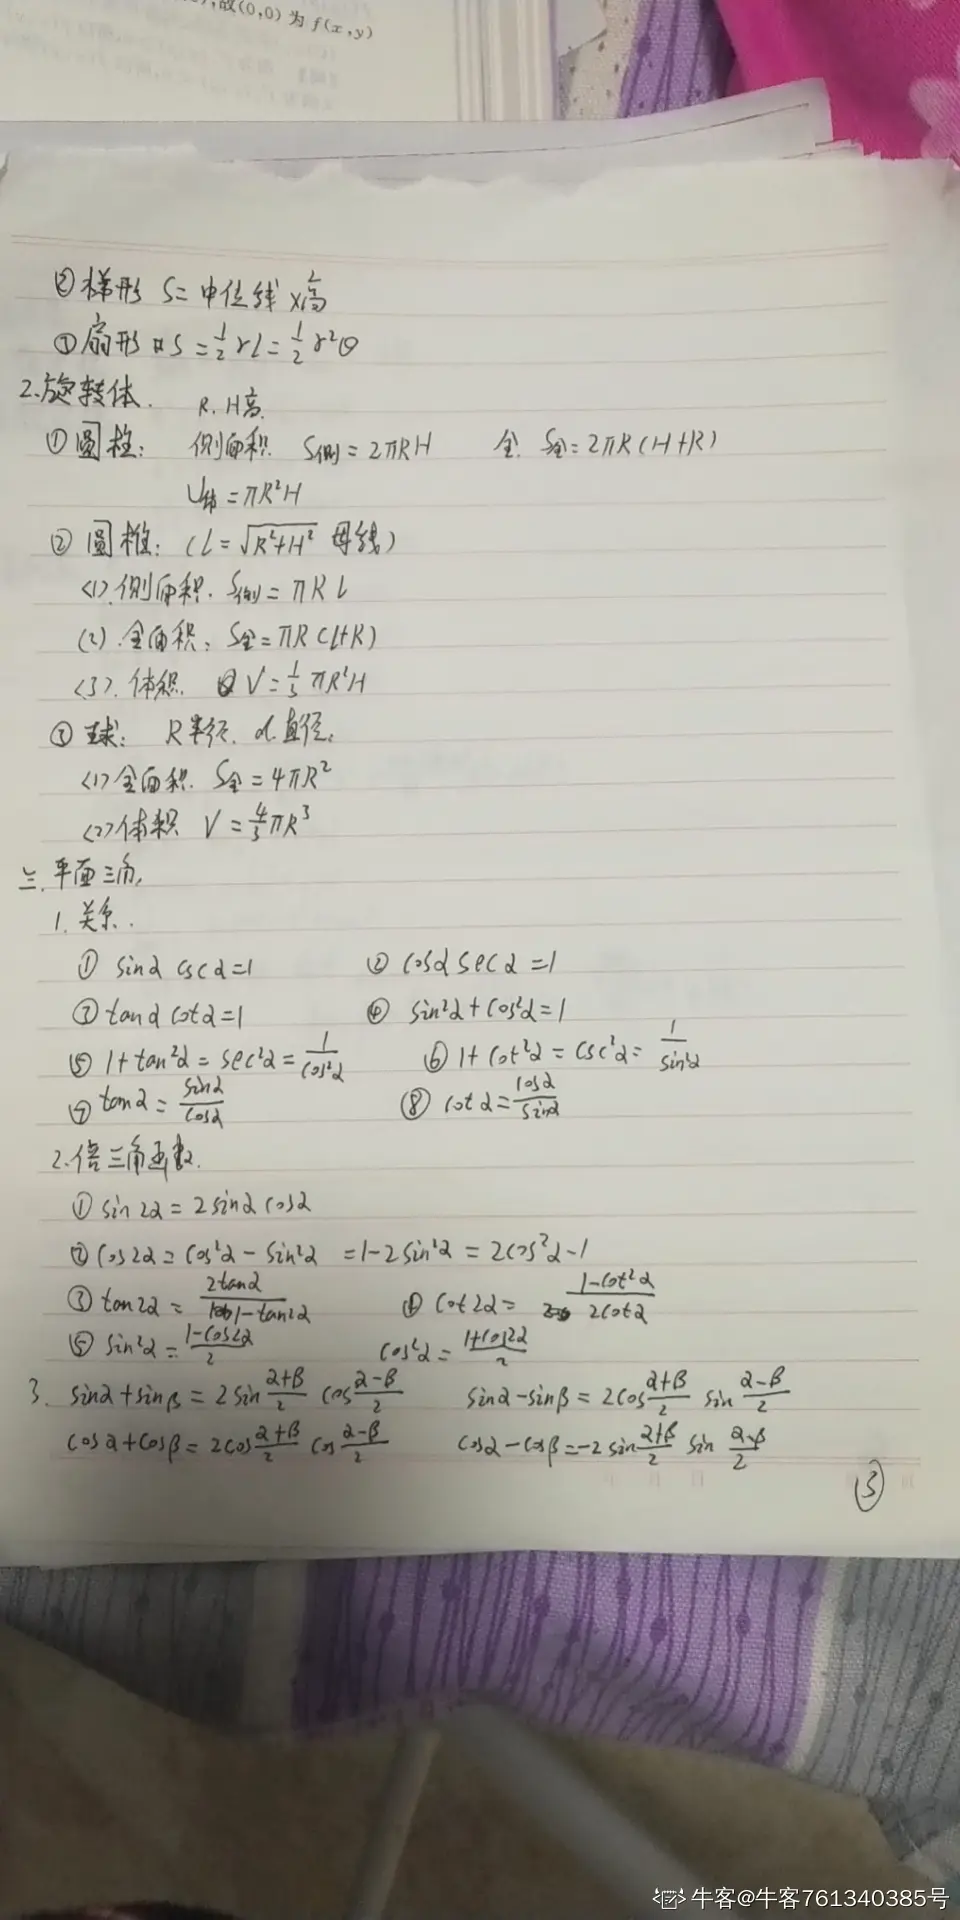 ,故(0,0) 为 f(x,y)
② 梯形 S= 中位线 ×高
③ 扇形 S = 1/2 rl = 1/2 r²θ
2.旋转体. R. H高.
① 圆柱: 侧面积 S侧 = 2πRH 全. S全 = 2πR(H+R)
V体 = πR²H
② 圆椎: (L = √(R²+H²) 母线)
<1>.侧面积. S侧 = πRL
(2).全面积: S全 = πR(L+R)
<3>. 体积. V = 1/3 πR²H
③ 球: R半径. d.直径.
<1>全面积. S全 = 4πR²
<2>体积 V = 4/3 πR³
三. 平面三角.
1. 关系.
① sinα cscα=1 ② cosα secα =1
③ tanα cotα=1 ④ sin²α + cos²α=1
⑤ 1+tan²α = sec²α = 1/cos²α ⑥ 1+cot²α = csc²α = 1/sin²α
⑦ tanα = sinα/cosα ⑧ cotα = cosα/sinα
2.倍三角函数.
① sin2α = 2sinα cosα
② cos2α = cos²α - sin²α = 1-2sin²α = 2cos²α-1
③ tan2α = 2tanα/1-tan2α ④ cot2α = 1-cot²α/2cotα
⑤ sin²α = 1-cos2α/2 cos²α = 1+cos2α/2
3. sinα+sinβ = 2 sin α+β/2 cos α-β/2 sinα-sinβ = 2cos α+β/2 sin α-β/2
cosα+cosβ = 2cos α+β/2 cos α-β/2 cosα-cosβ = -2 sin α+β/2 sin α-β/2
③
牛客@牛客761340385号